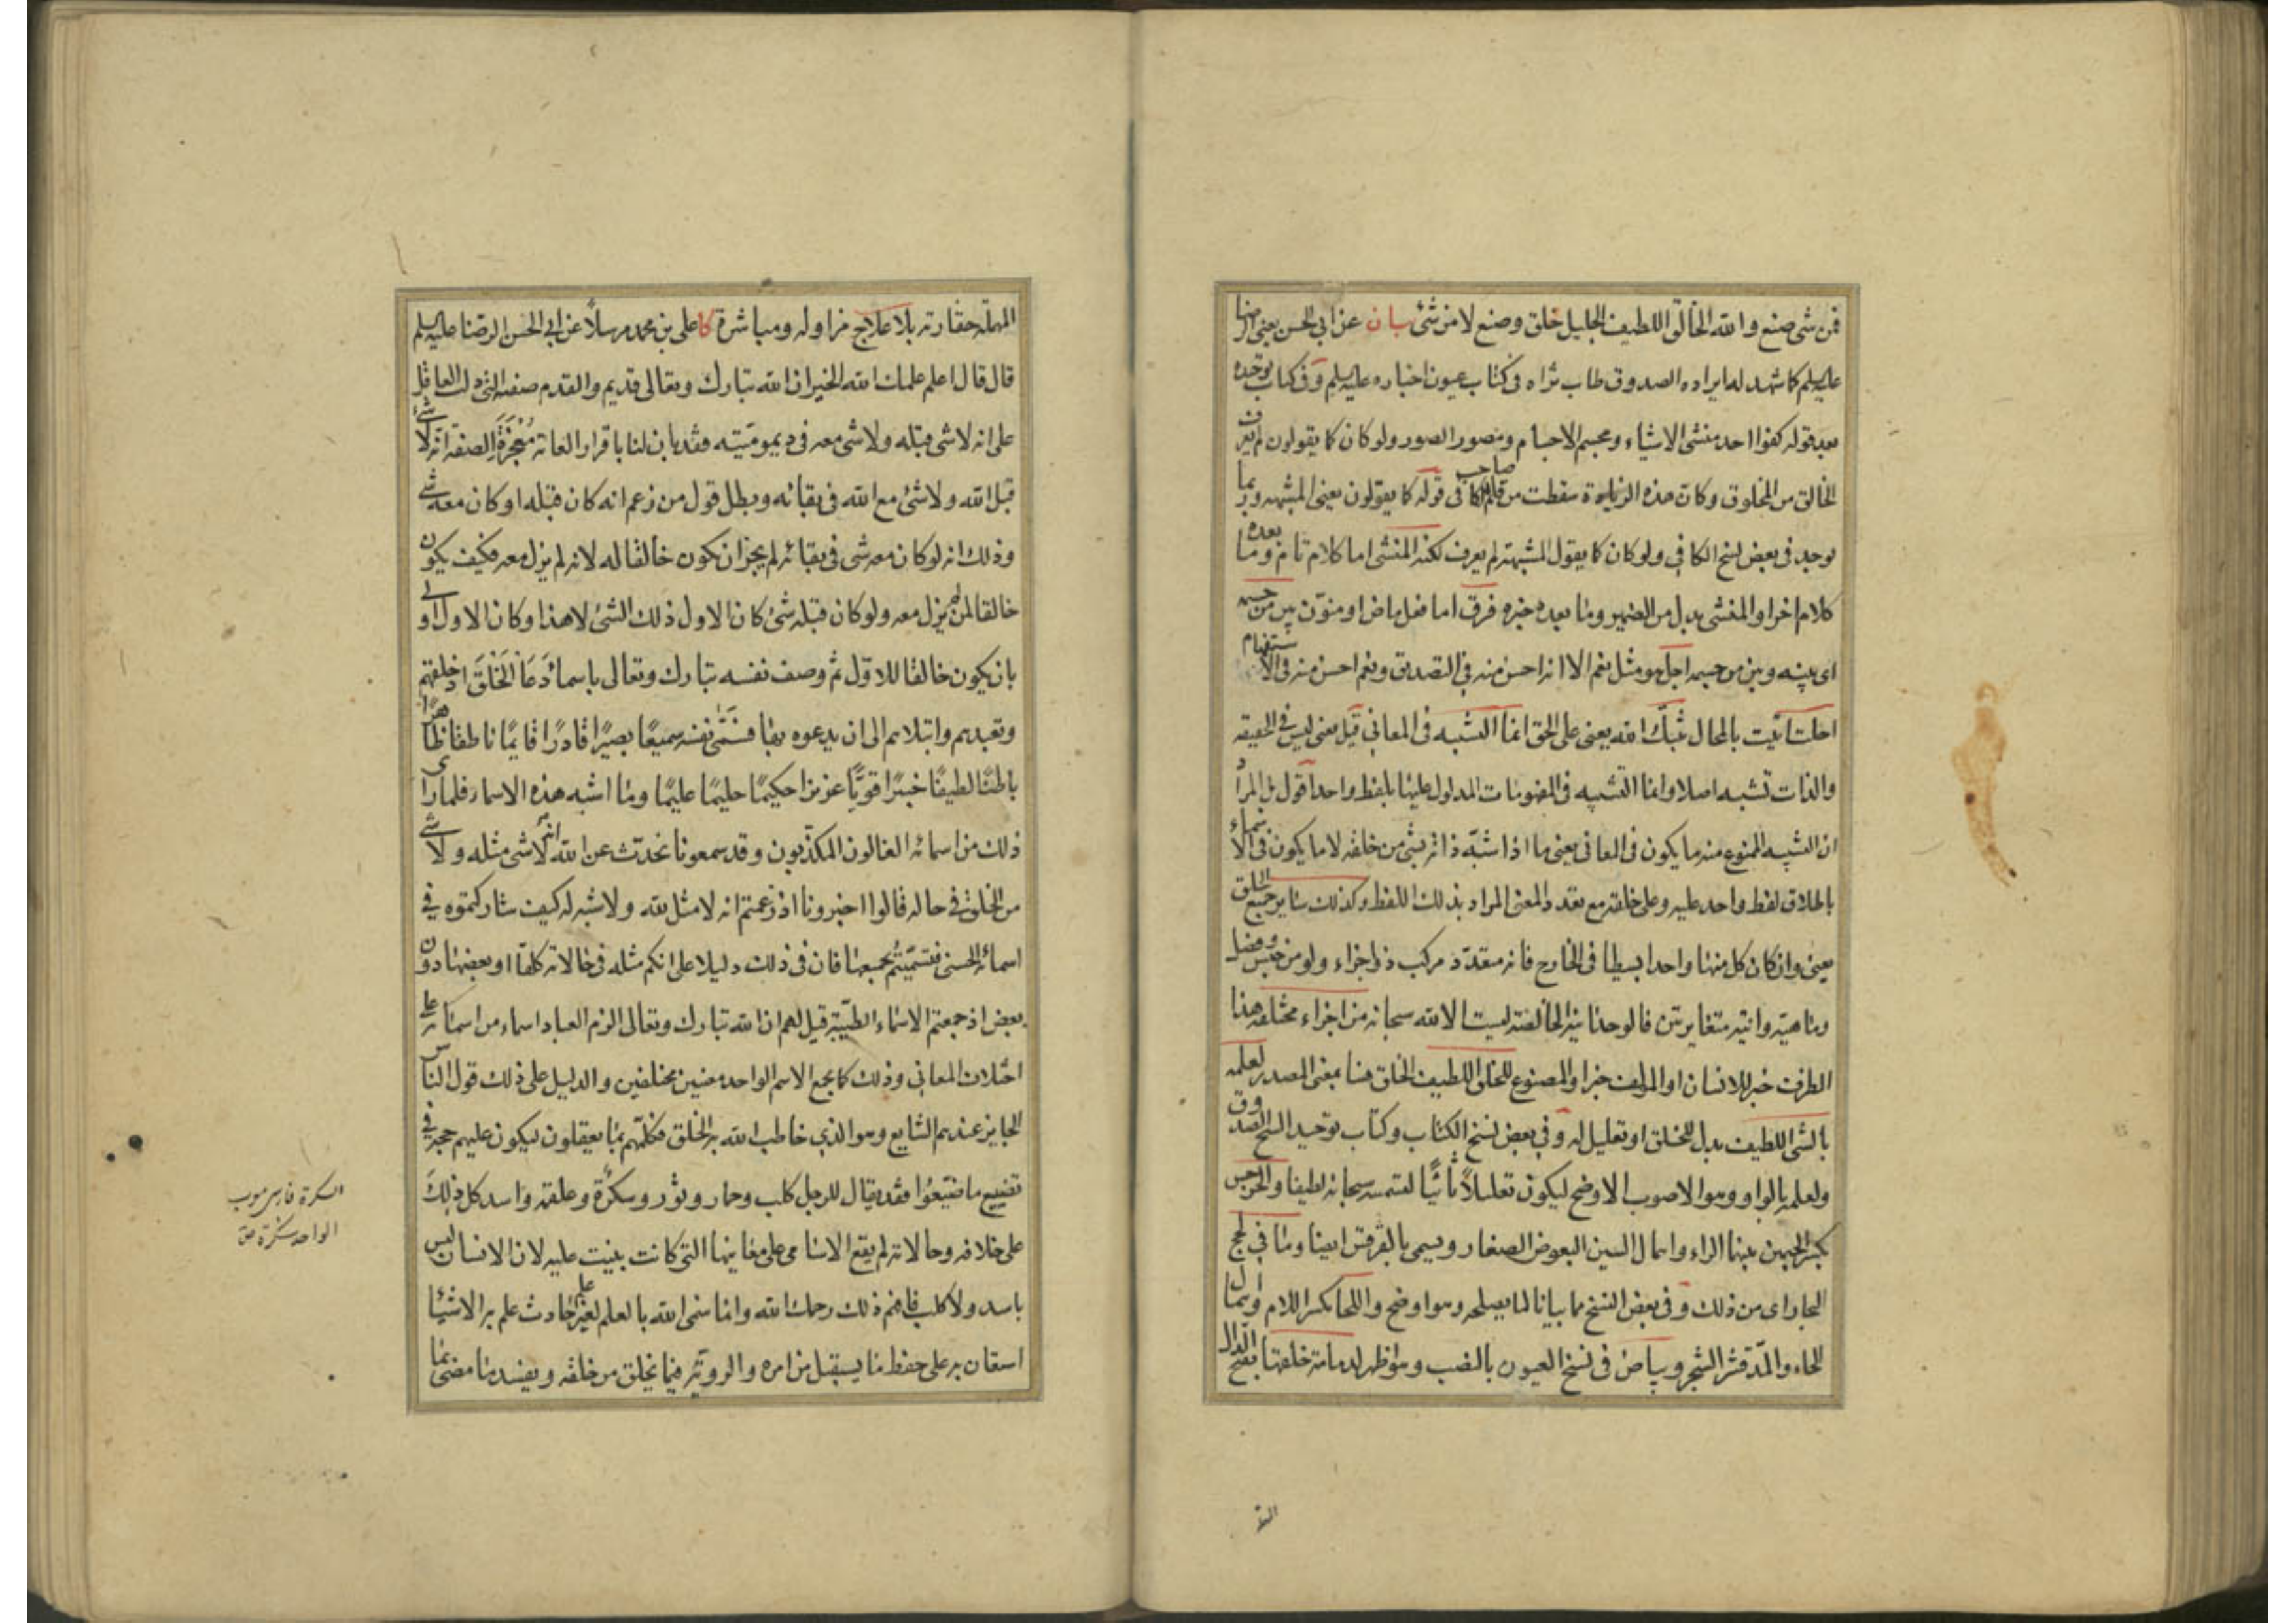 فمن شئ صنع والله الخالق اللطيف الجليل خلق وصنع لا من شئ بيان عن ابي الحسن يعني الرضا
عليه السلم كما شهد له ايراده الصدوق طاب ثراه في كتاب عيون اخباره عليه السلم وفي كتاب توحيده
بعد قوله كفوا احد منشئ الاشياء ومجسم الاجسام ومصور الصور ولو كان كما يقولون لم يعرف
الخالق من المخلوق وكان هذه الزيادة سقطت من قلم صاحب الكافي قوله كما يقولون يعني المشبهه وربما
يوجد في بعض نسخ الكافي ولو كان كما يقول المشبهة لم يعرف لكنه المنشئ اما كلام تام وما بعده
كلام اخر او المنشئ بدل من الضمير وما بعده خبره فرق اما فعل ماض او منون بين من جسمه
اي بينه وبين من جسمه اجل هو مثل نعم الا انه احسن منه في التصديق ونعم احسن منه في الاستفهام
احلت اتيت بالمحال ثبتك الله يعني على الحق انما التشبيه في المعاني قيل يعني ليس في الحقيقه
والذات تشبيه اصلا وانما التشبيه في المفهومات المدلول عليها بلفظ واحد اقول بل المراد
ان التشبيه الممنوع منه ما يكون في المعاني يعني ما اذا شبه ذاته بشئ من خلقه لا ما يكون في الاسماء
باطلاق لفظ واحد عليه وعلى خلقه مع تعدد المعنى المراد بذلك اللفظ وكذلك سائر جميع الخلق
يعني وان كان كل منها واحدا بسيطا في الخارج فانه متعدد مركب ذو اجزاء ولو من جنس وفصل
وماهية وانية متغايرتين فالوحدانية الخالصة ليست الا لله سبحانه من اجزاء مختلفه هذا
الظرف خبر للانسان او المؤلف خبر او المصنوع للخلق اللطيف الخلق هنا بمعنى المصدر لعلمه
بالشئ اللطيف بدل للخلق او تعليل له وفي بعض نسخ الكتاب وكتاب توحيد الشيخ الصدوق
ولعلمه بالواو وهو الاصوب الاوضح ليكون تعليلاً ثانيًا لتسميته سبحانه لطيفا والجرجس
بكسر الجيمين بينهما الراء واهمال السين البعوض الصغار ويسمى بالقرقس ايضا وما في لجج
البحار اي من ذلك وفي بعض النسخ مما بيانا لما يصلحه وهو اوضح واللحا بكسر اللام واهمال
الحاء والمد قشر الشجر وبياض في نسخ العيون بالنصب وهو اظهر لدمامة خلقها بفتح الدال
المهملة حقارته بلا علاج مزاوله ومباشرة كا علي بن محمد مرسلاً عن ابي الحسن الرضا عليه السلم
قال قال اعلم علمك الله الخير ان الله تبارك وتعالى قديم والقدم صفته التي دلت العاقل
على انه لا شئ قبله ولا شئ معه في ديموميته فقد بان لنا باقرار العامة مُعْجِزَةَ الصفة انه لا شئ
قبل الله ولا شئ مع الله في بقائه وبطل قول من زعم انه كان قبله او كان معه شئ
وذلك انه لو كان معه شئ في بقائه لم يجز ان يكون خالقا له لانه لم يزل معه فكيف يكون
خالقا لمن لم يزل معه ولو كان قبله شئ كان الاول ذلك الشئ لا هذا وكان الاول اولى
بان يكون خالقا للاول ثم وصف نفسه تبارك وتعالى باسماء دَعَا الخَلْقَ اذ خلقهم
وتعبدهم وابتلاهم الى ان يدعوه بها فسَمّى نفسه سميعًا بصيرًا قادرًا قايمًا ناطقا ظاهرًا
باطنًا لطيفًا خبيرًا قويًّا عزيزا حكيمًا حليمًا عليمًا وما اشبه هذه الاسماء فلما راى
ذلك من اسمائه الغالون المكذّبون وقد سمعونا نحدث عن الله انه لا شئ مثله ولا شئ
من الخلق في حاله قالوا اخبرونا اذ زعمتم انه لا مثل لله ولا شبه له كيف شاركتموه في
اسمائه الحسنى فتسمّيتُم بجميعها فان في ذلك دليلا على انكم مثله في حالاته كلها او بعضها دون
بعض اذ جمعتم الاسماء الطيّبة قيل لهم ان الله تبارك وتعالى الزم العباد اسماء من اسمائه على
اختلاف المعاني وذلك كما يجمع الاسم الواحد معنيين مختلفين والدليل على ذلك قول الناس
الجايز عندهم الشايع وهو الذي خاطب الله به الخلق فكلّمهم بما يعقلون ليكون عليهم حجة في
تضييع ما ضيّعُوا فقد يقال للرجل كلب وحمار وثور وسكرة وعلقمة واسد كل ذلك
على خلافه وحالاته لم يقع الاسامي على معانيها التي كانت بنيت عليه لان الانسان ليس
باسد ولا كلب فافهم ذلك رحمك الله وانما سمى الله بالعلم لغير علم حادث علم به الاشياء
استعان به على حفظ ما يستقبل من امره والروية فيما يخلق من خلقه ويفسد ما مضى مما
السكرة فارسي معرب
الواحد سكرة